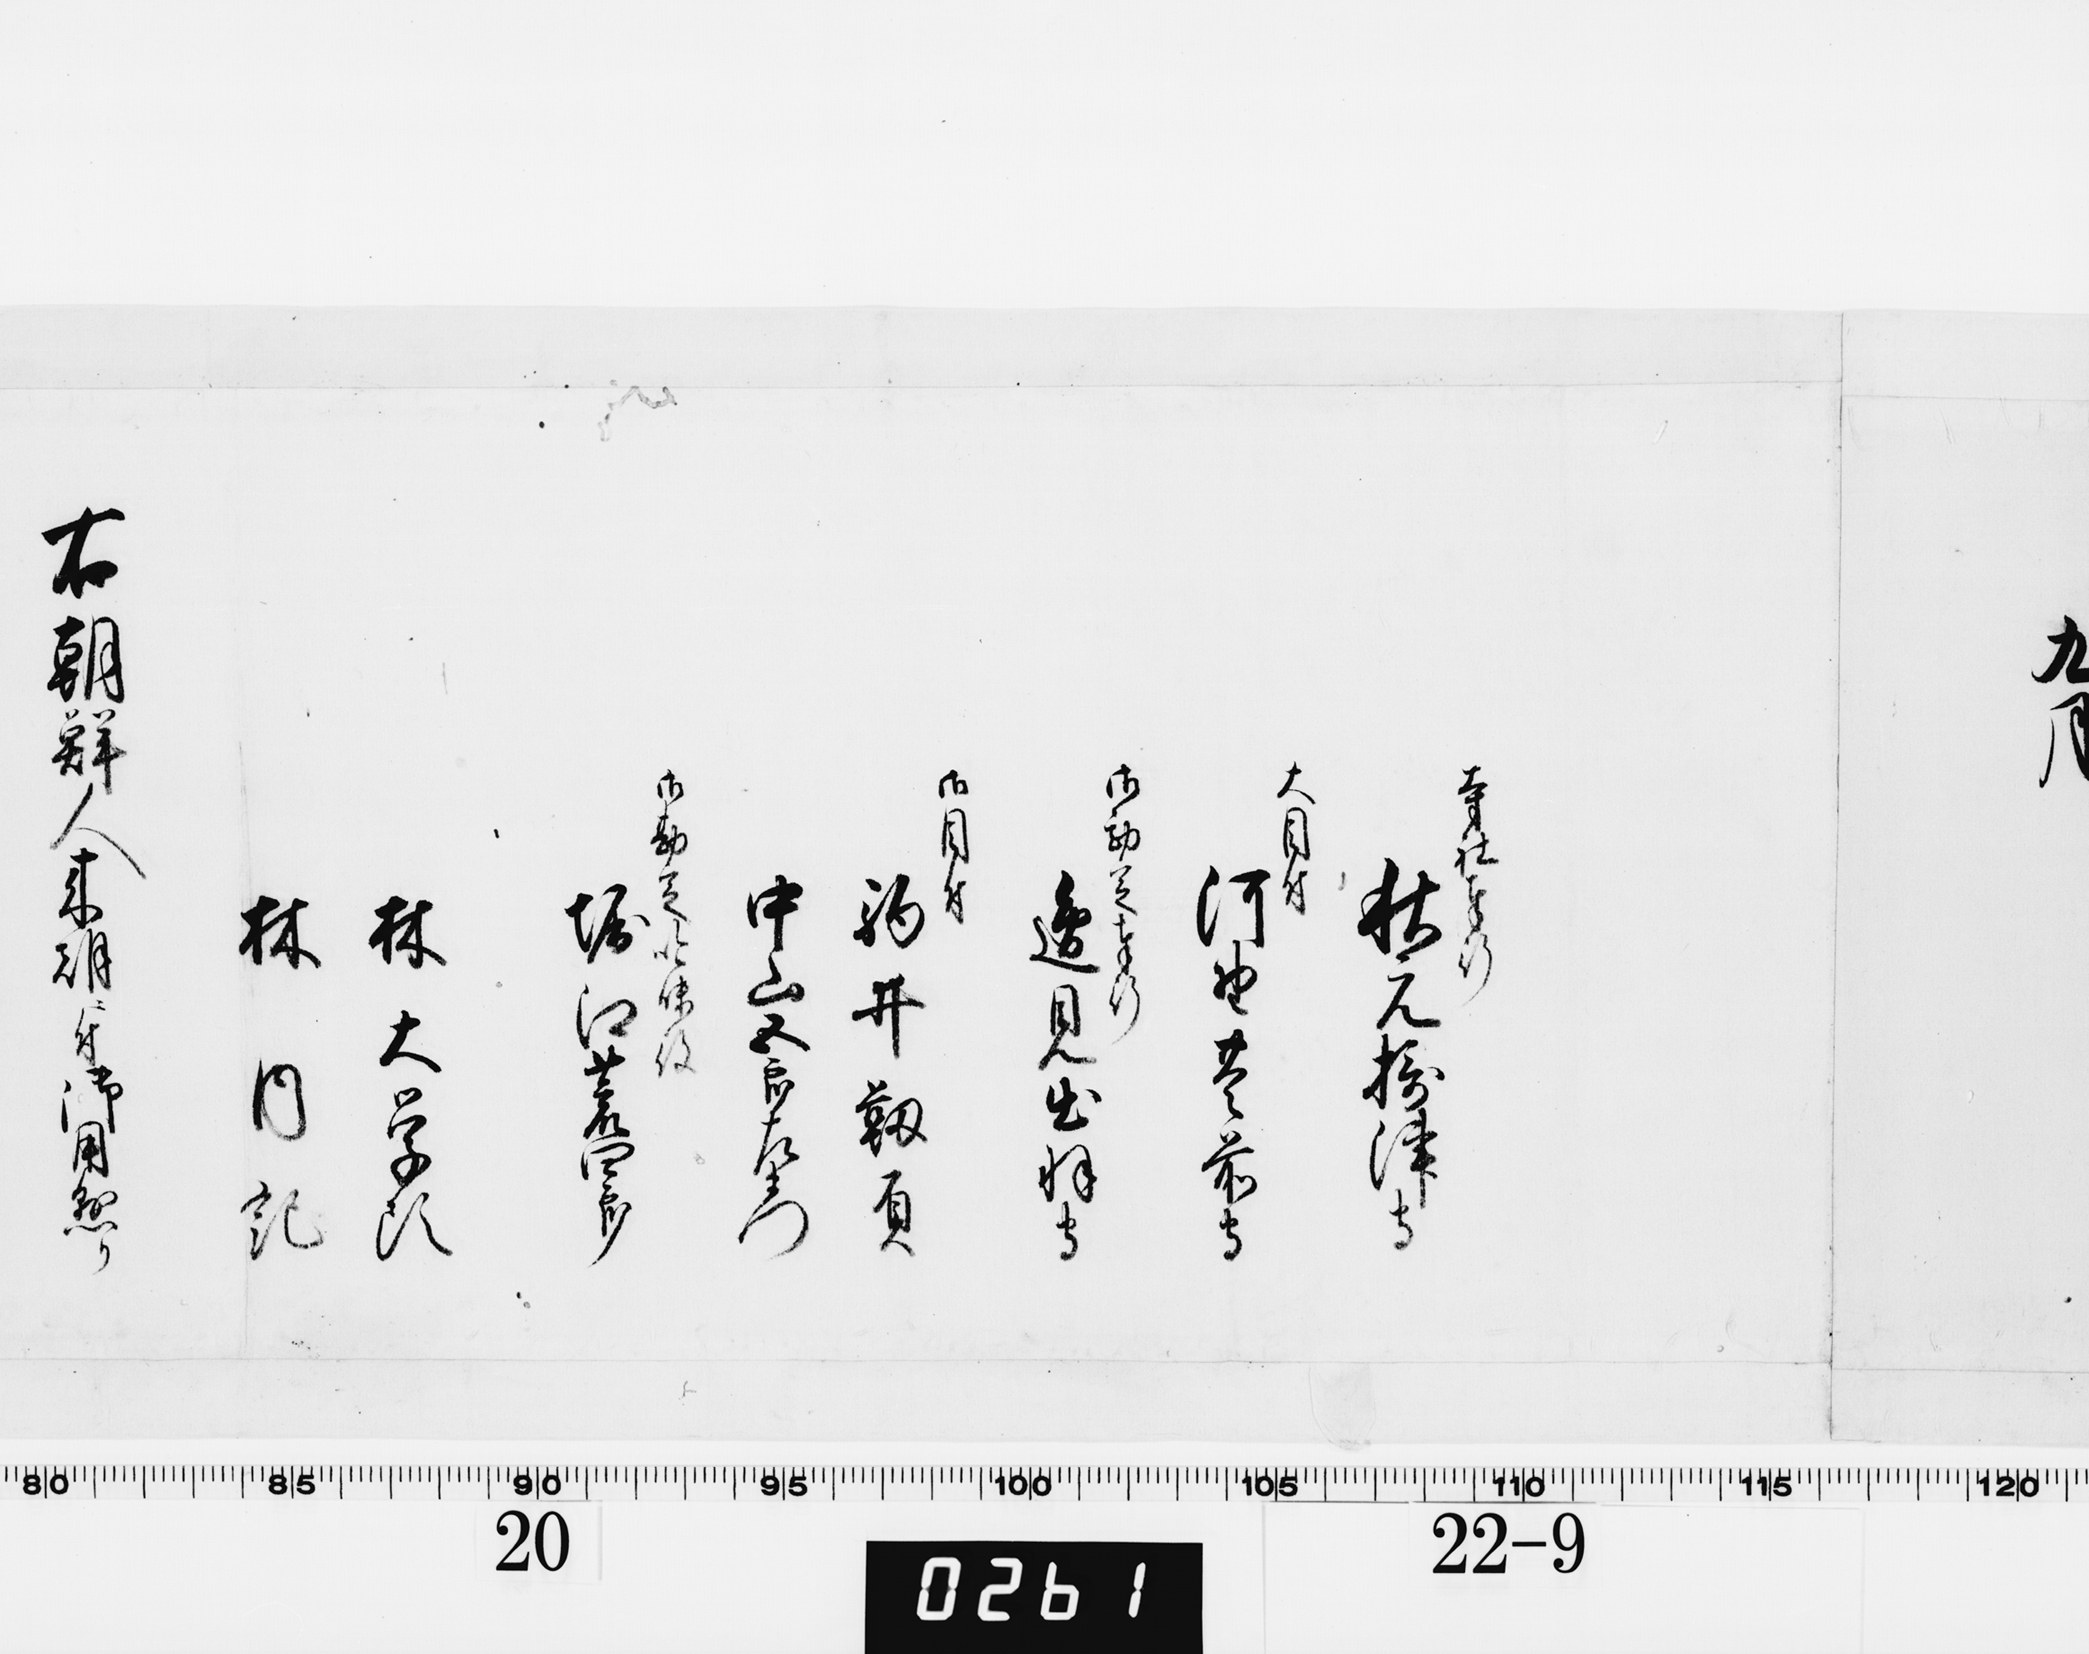 九月
寺社奉行
秋元摂津守
大目付
河野豊前守
御勘定奉行
逸見出羽守
御目付
駒井靱負
中山五郎左衛門
御勘定吟味役
堀江荒四郎
林大学頭
林内記
右朝鮮人来朝ニ付御用懸り
80 85 90 95 100 105 110 115 120
20
22-9
0261